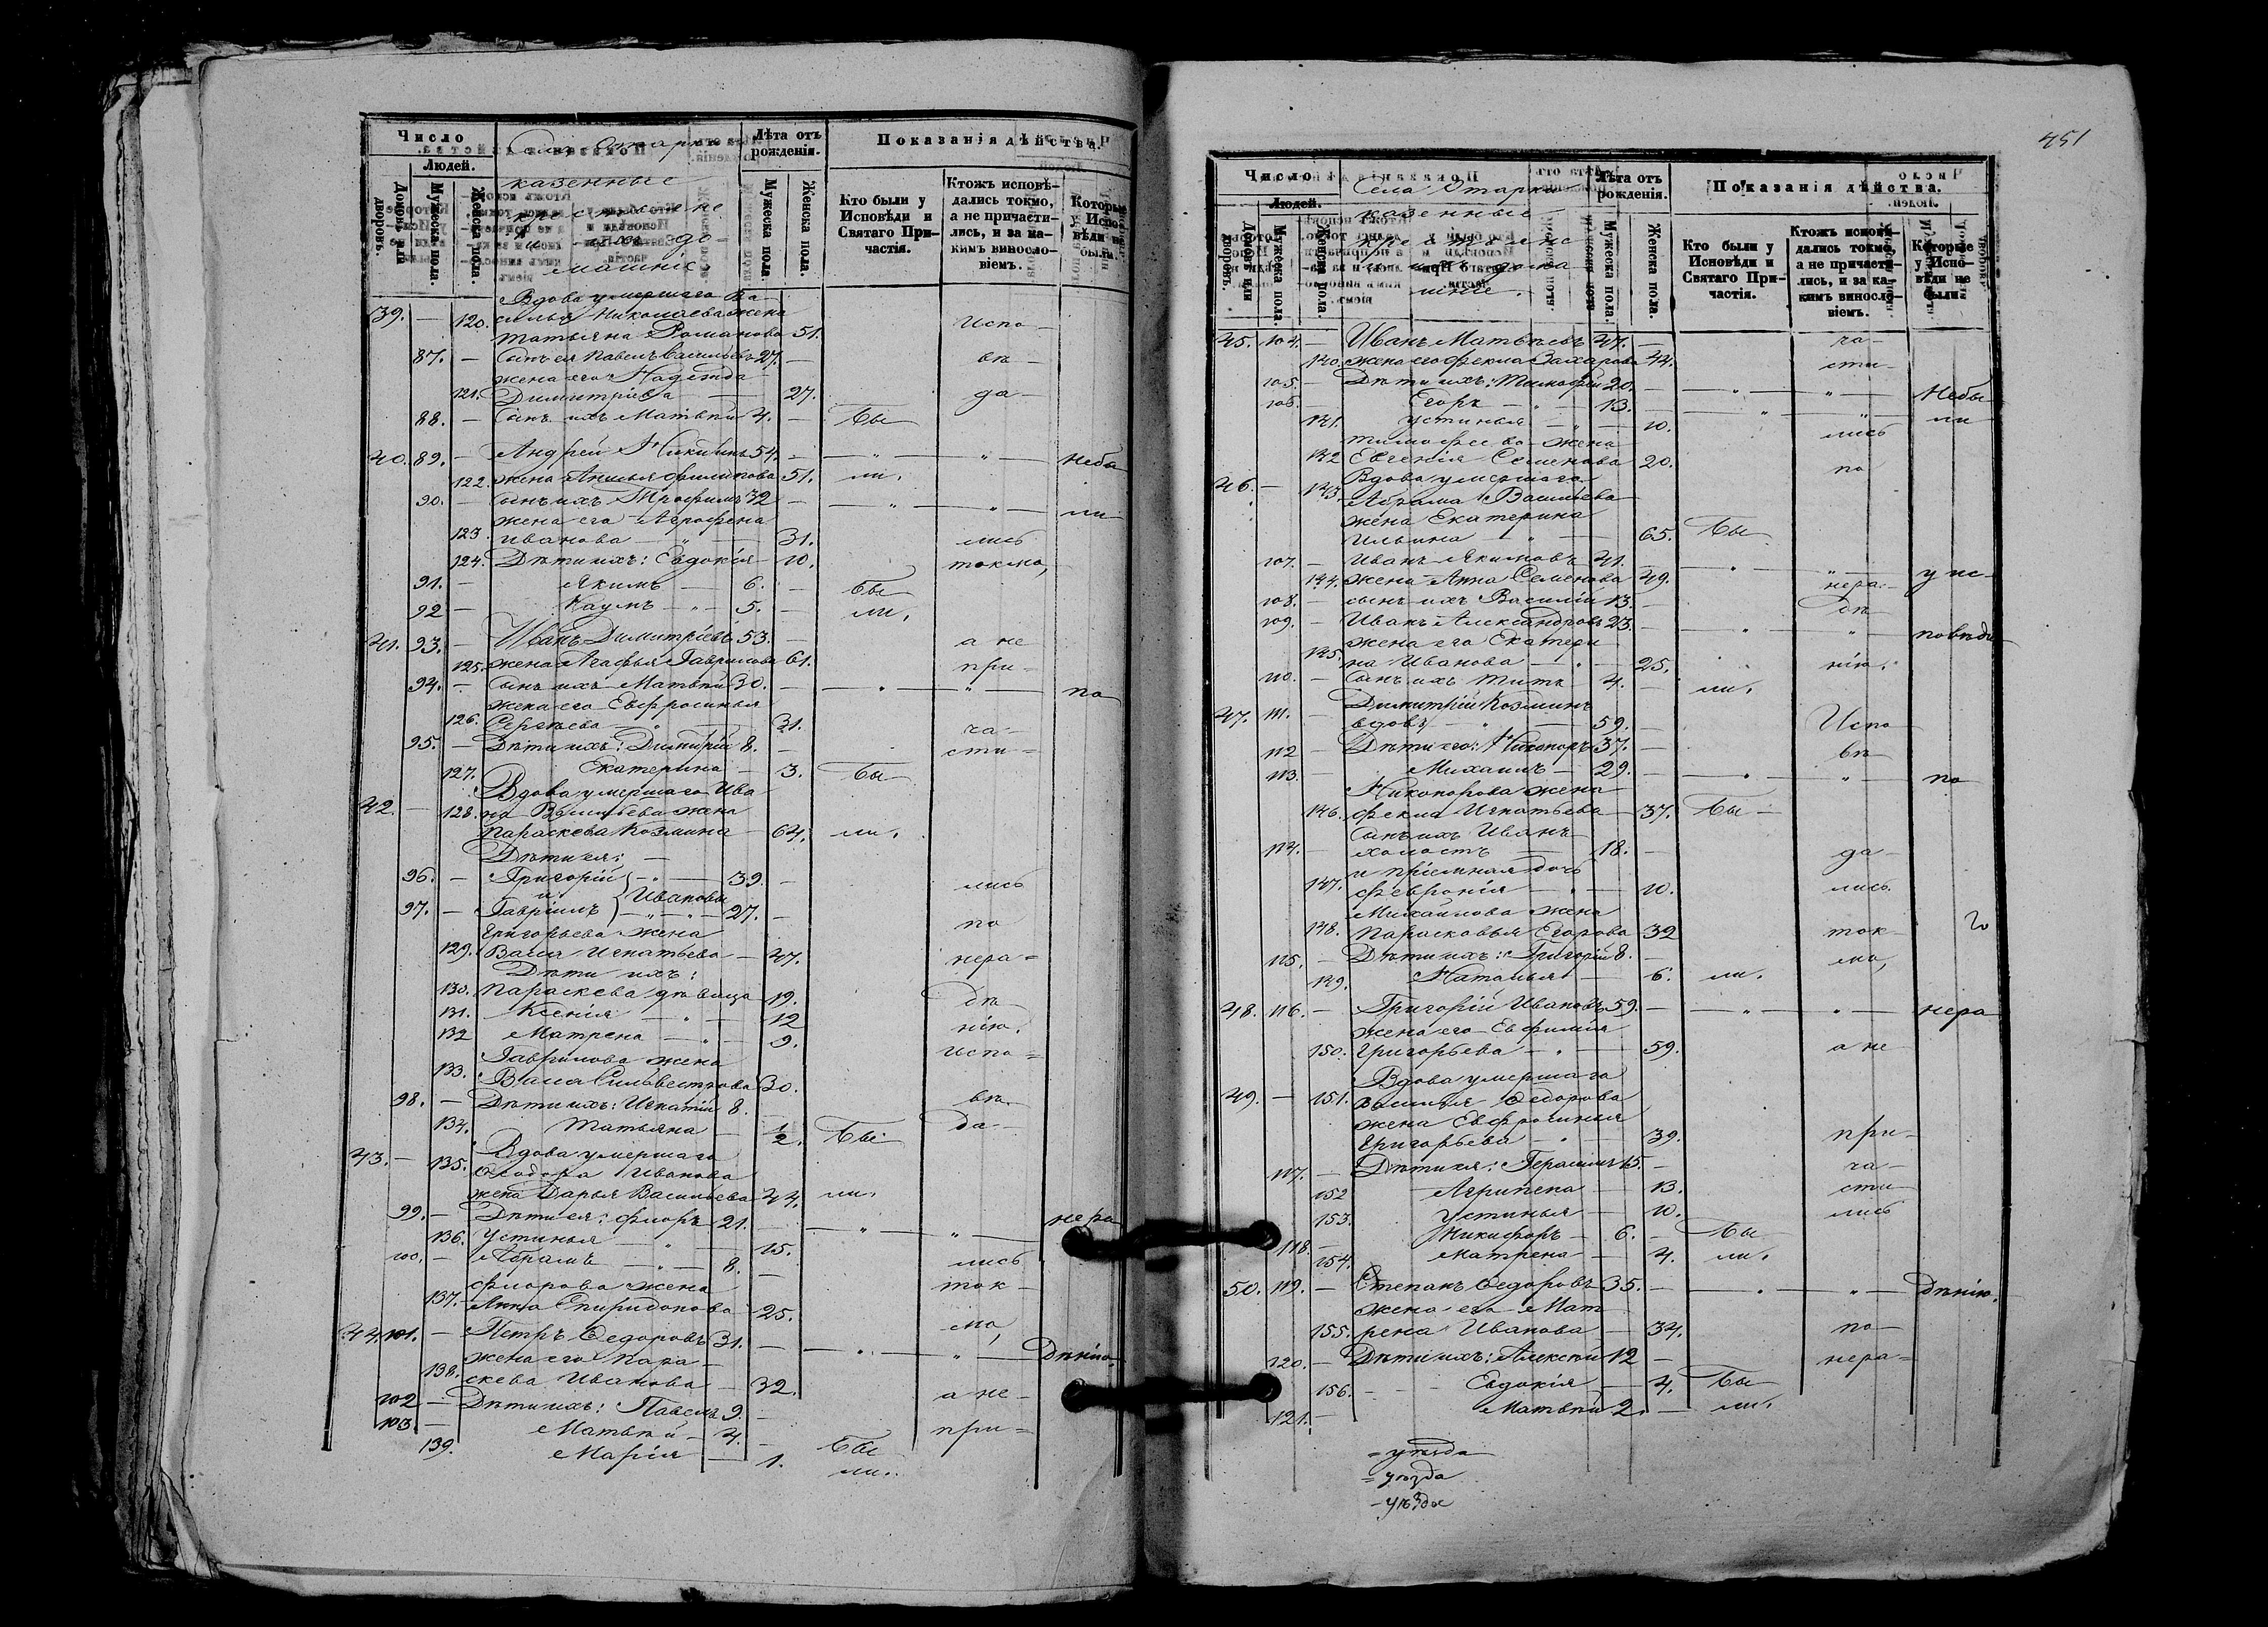 Число
Лѣта отъ рожденія.
Показанія дѣйства.
Людей.
Домовъ или дворовъ.
Мужеска пола.
Женска пола.
казенные
крестьяне
и ихъ до-
машніе.
Мужеска пола.
Женска пола.
Кто были у Исповѣди и Святаго Причастія.
Ктожъ исповѣдались токмо, а не причастились, и за какимъ винословіемъ.
Которые у Исповѣди не были.
Вдова умершаго Ва-
39. — 120. силья Николаева жена
Татьяна Романова 51. Испо-
87. — Сынъ ея Павелъ Васильевъ 27. — вѣ-
жена его Надежда
121. Димитріева — 27. да-
88. — Сынъ ихъ Матвѣй 4. — Бы
40. 89. — Андрей Никитинъ 54. — " — " — Небы
122. жена Анисья Филипова 51. ли.
90. — сынъ ихъ Трофимъ 32 — " — " — ли
жена его Агрофена
123. Иванова — " — 31. лись
124. Дѣти ихъ: Евдокія — 10. токмо,
91. — Якимъ — 6. — бы
92 — Наумъ — " — 5. — ли.
41. 93. — Иванъ Димитріевъ 53. — а не
125. жена Агафья Гаврилова 61. при-
94. — Сынъ ихъ Матвѣй 30. — " — " — по
жена его Евфросинья
126. Сергѣева — " — 31. ча-
95. — Дѣти ихъ: Димитрій 8. — сти-
127. Екатерина — 3. Бы
Вдова умершаго Ива
42. — 128. на Васильева жена
Параскева Козмина — 64. ли.
Дѣти ея: —
96. — Григорій — " — 39. — лись
и Ивановы
97. — Гавріилъ — " — 27. — по
Григорьева жена
129. Васса Игнатьева — 47. нера-
Дѣти ихъ:
130. Параскева дѣвица — 19. дѣ
131. Ксенія — " — 12 нію.
132 Матрена — " — 9. Испо-
Гаврилова жена
133. Васса Сильвестрова 30. вѣ-
98. — Дѣти ихъ: Игнатій 8. —
134. Татьяна — 1/2. Бы да-
Вдова умершаго
43. — 135. Ѳеодора Иванова
жена Дарья Васильева 44. ли.
99. — Дѣти ея: Флоръ 21. — " — " — нера
136. Устинья — " — 15.
100. — Абрамъ — " — 8. — лись
Флорова жена ток-
137. Анна Спиридонова — 25. мо,
44. 101. — Петръ Ѳедоровъ 31. — " — " — дѣнію.
жена его Пара-
138. скева Иванова — 32. а не-
102 — Дѣти ихъ: Павелъ 9. —
103. — Матвѣй — 4. — при-
139. Марія — 1. Бы
ли.
451
Число
Лѣта отъ рожденія.
Показанія дѣйства.
Людей.
Домовъ или дворовъ.
Мужеска пола.
Женска пола.
Села Отарки
казенные
крестьяне
и ихъ дома-
шніе.
Мужеска пола.
Женска пола.
Кто были у Исповѣди и Святаго Причастія.
Ктожъ исповѣдались токмо, а не причастились, и за какимъ винословіемъ.
Которые у Исповѣди не были.
45. 104. — Иванъ Матвѣевъ 47. — ча-
140. жена его Фекла Захарова 44. сти-
105. — Дѣти ихъ: Тимофей 20. — " — " — Небы
106. — Егоръ — " — 13. — " — " — ли
141. Устинья — " — 10. лись
Тимофеева жена
142 Евгенія Семенова 20. по
46. — 143. Вдова умершаго
Абрама Васильева
жена Екатерина
Ильина — " — 65. Бы
107. — Иванъ Якимовъ 41. — " — " — у ис-
144. жена Анна Семенова 49. нера-
108. — сынъ ихъ Василій 13. — дѣ
109. — Иванъ Александровъ 23. — " — " — повѣди
жена его Екатери
145. на Иванова — " — 25. нію.
110. — Сынъ ихъ Титъ 4. — ли.
Димитрій Козминъ
47. 111. — вдовъ — " — 59. — Испо
112 — Дѣти его: Никоноръ 37. — вѣ
113. — Михаилъ — 29. — " — " — по
Никонорова жена
146. Фекла Игнатьева — 37. Бы-
Сынъ ихъ Иванъ
114. — холостъ — 18. — да-
и пріемная дочь
147. Февронія — " — 10. лись
Михайлова жена
148. Парасковья Егорова 32 ток-
115. — Дѣти ихъ: Григорій 8. — мо,
149. Наталья — 6. ли.
48. 116. — Григорій Ивановъ 59. — " — " — нера
жена его Евфимія
150. Григорьева — " — 59. а не
Вдова умершаго
49. — 151. Василья Ѳедорова
жена Евфросинья
Григорьева — " — 39. при-
117. — Дѣти ея: Герасимъ 15. — ча-
152 Агрипена — 13. сти-
153. Устинья — 10. лись
118. — Никифоръ — 6. — Бы
154. Матрена — 4. ли.
50. 119. — Степанъ Ѳедоровъ 35. — " — " — дѣнію.
жена его Мат
155. рена Иванова — 34. по-
120. — Дѣти ихъ: Алексѣй 12 — нера-
156. — Евдокія — 4. Бы
121. — Матвѣй 2. — ли.
= уѣзда
= уѣзда
- уѣзда